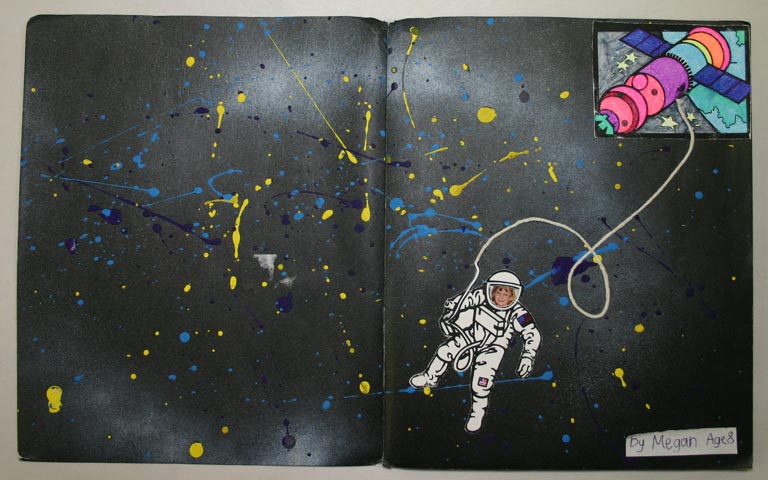 by Megan Age8